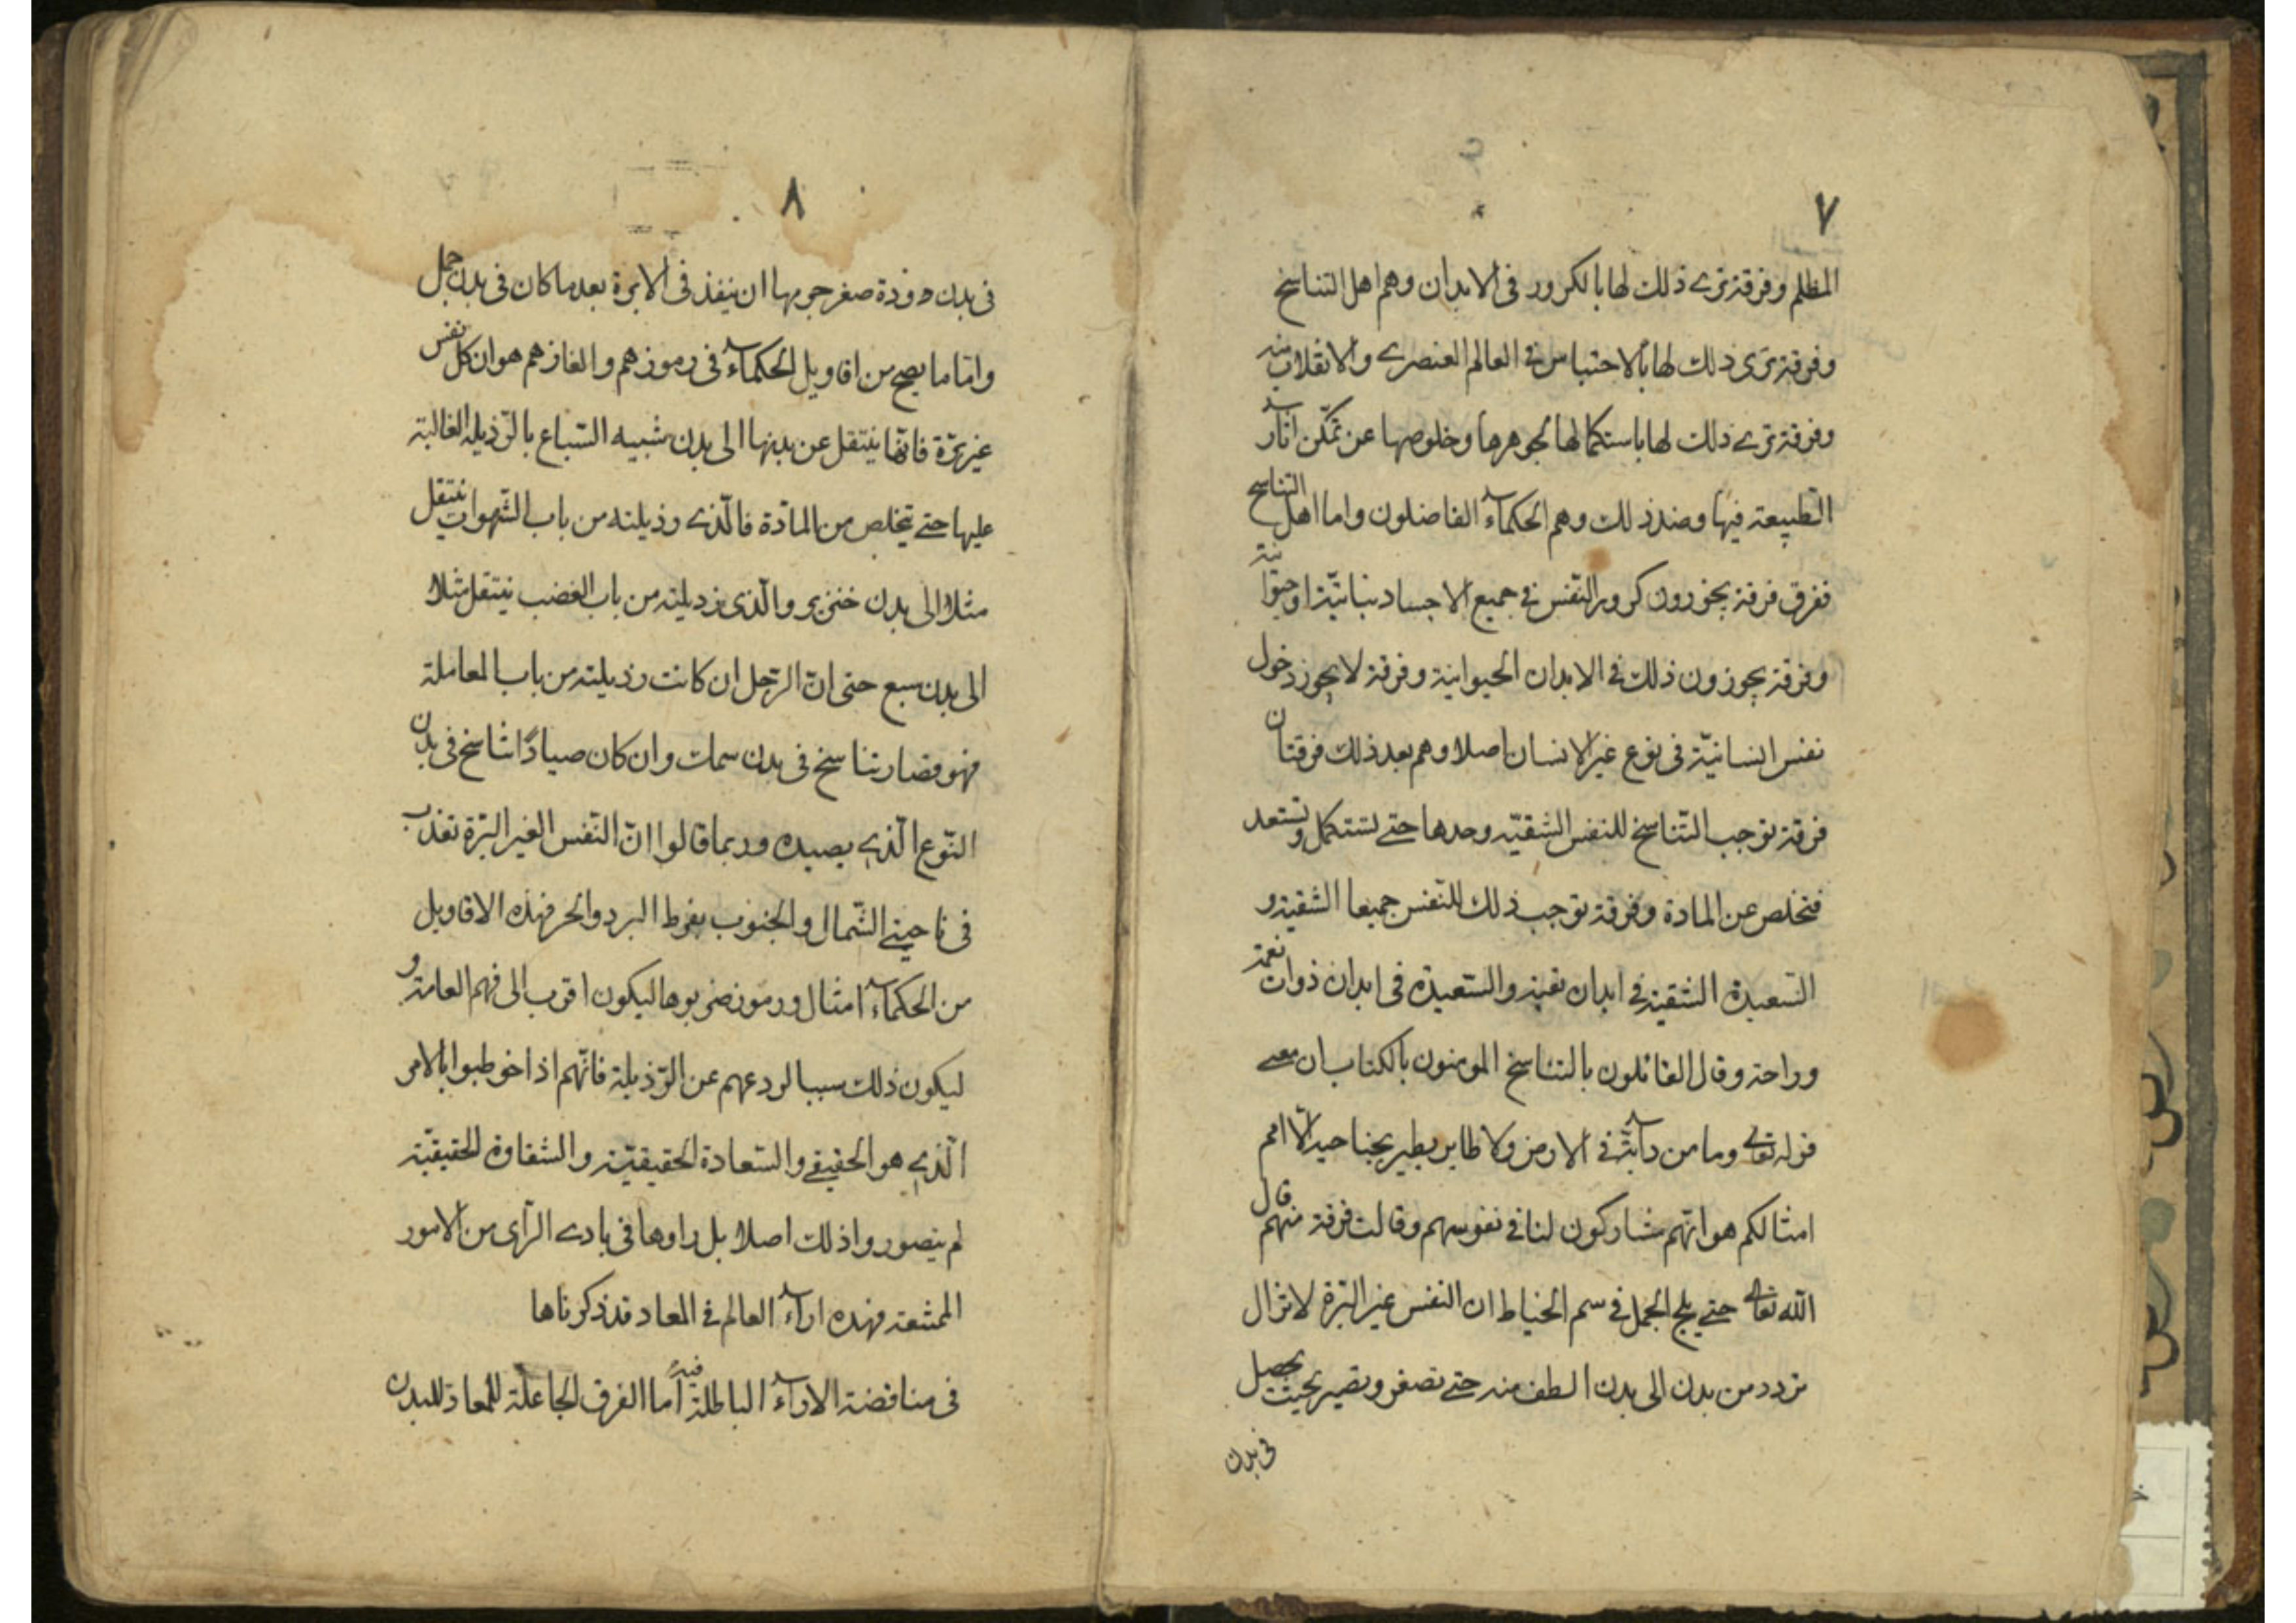 ٧
المظلم وفرقة ترى ذلك لها بالكرور في الابدان وهم اهل التناسخ
وفرقة ترى ذلك لها بالاحتباس في العالم العنصرى والانفلات منه
وفرقة ترى ذلك لها باستكمالها لجوهرها وخلوصها عن تمكّن اثار
الطبيعة فيها وضد ذلك وهم الحكماء الفاضلون واما اهل التناسخ
ففرق فرقة يجوزون كرور النّفس في جميع الاجساد نباتيّة او حيوانية
وفرقة يجوزون ذلك في الابدان الحيوانية وفرقة لا يجوز دخول
نفس انسانيّة في نوع غير الانسان اصلا وهم بعد ذلك فرقتان
فرقة توجب التّناسخ للنفس الشقيّه وحدها حتى تستكمل وتستعد
فتخلص عن المادة وفرقة توجب ذلك للنّفس جميعا الشقية و
السّعيدة الشقية في ابدان تعبة والسّعيدة في ابدان ذوات نعمة
وراحة وقال القائلون بالتناسخ المومنون بالكتاب ان معنى
قوله تعالى وما من دابّة في الارض ولا طاير يطير بجناحيه الّا امم
امثالكم هو انّهم مشاركون لنا في نفوسهم وقالت فرقة منهم قال
الله تعالى حتى يلج الجمل في سم الخياط ان النفس غير البّرة لا تزال
تردد من بدن الى بدن الطف منه حتى تصغر وتصير بحيث تحصل
في بدن
٨
في بدن دودة صغر جرمها ان ينفذ في الابرة بعد ما كان في بدن جمل
وامّا ما يصح من اقاويل الحكماء في رموزهم والغازهم هو ان كل نفس
غير برّة فانّها ينتقل عن بدنها الى بدن شبيه السّباع بالرّذيلة الغالبة
عليها حتى يتخلص من المادّة فالّذى رذيلته من باب الشّهوات ينتقل
مثلا الى بدن خنزير والّذى رذيلته من باب الغضب ينتقل مثلا
الى بدن سبع حتى انّ الرّجل ان كانت رذيلته من باب المعاملة
فهو قصار تناسخ في بدن سمك وان كان صيادًا تناسخ في بدن
النّوع الّذى يصيده وربما قالوا انّ النّفس الغير البّرة تعذب
في ناحيتى الشّمال والجنوب بفرط البرد والحر فهذه الاقاويل
من الحكماء امثال ورموز ضربوها ليكون اقرب الى فهم العامة و
ليكون ذلك سببا لردعهم عن الرّذيلة فانّهم اذا خوطبوا بالامر
الّذى هو الحقيقى والسّعادة الحقيقيّة والشقاوة الحقيقيّة
لم يتصوروا ذلك اصلا بل راوها في بادى الرّاى من الامور
الممتنعة فهذه اراء العالم في المعاد قد ذكرناها
في مناقضة الاراء الباطلة فيه امّا الفرق الجاعلة للمعاد للبدن